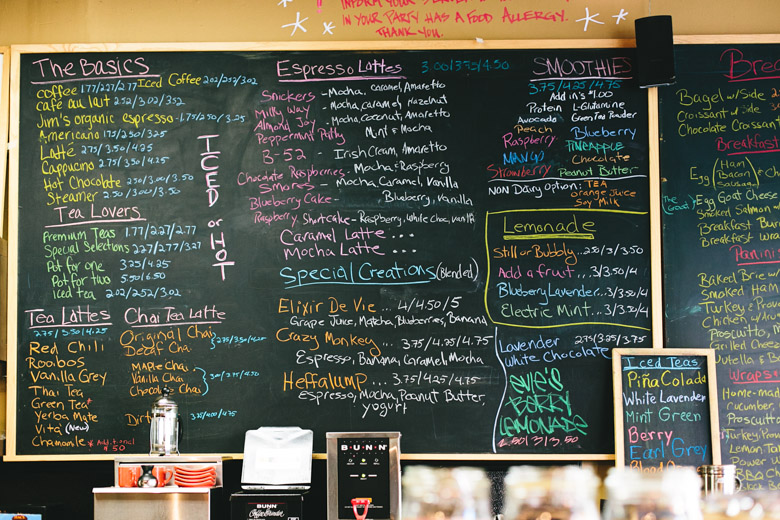 INFORM YOUR
IN YOUR PARTY HAS A FOOD ALLERGY.
THANK YOU.
The Basics
Coffee 1.77/2.27/2.77 Iced Coffee 2.02/2.52/3.02
Café au lait 2.52/3.02/3.52
Jim's organic espresso 1.75/2.50/3.25
Americano 1.75/2.50/3.25
Latte 2.75/3.50/4.25
Cappucino 2.75/3.50/4.25
Hot Chocolate 2.50/3.00/3.50
Steamer 2.50/3.00/3.50
ICED or HOT
Tea Lovers
Premium Teas 1.77/2.27/2.77
Special Selections 2.27/2.77/3.27
Pot for one 3.25/4.25
Pot for two 5.50/6.50
Iced tea 2.02/2.52/3.02
Tea Lattes
2.75/3.50/4.25
Red Chili
Rooibos
Vanilla Grey
Thai Tea
Green Tea
Yerba Mate
Vita (New)
Chamomile * Additional $.50
Chai Tea Latte
Original Chai
Decaf Chai
Maple Chai
Vanilla Chai 3.00/3.75/4.50
Chocolate Chai
Dirty 3.25/4.00/4.75
Espresso Lattes 3.00/3.75/4.50
Snickers - Mocha, caramel, Amaretto
Milky Way - Mocha, caramel, Hazelnut
Almond Joy - Mocha, coconut, Amaretto
Peppermint Patty Mint & Mocha
B-52 - Irish Cream, Amaretto
Chocolate Raspberries - Mocha & Raspberry
Smores - Mocha, Caramel, Vanilla
Blueberry Cake - Blueberry, Vanilla
Raspberry Shortcake - Raspberry, White Choc, Vanilla
Caramel Latte ...
Mocha Latte ...
Special Creations (Blended)
Elixir De Vie ... 4/4.50/5
Grape Juice, Matcha, Blueberries, Banana
Crazy Monkey ... 3.75/4.25/4.75
Espresso, Banana, Caramel, Mocha
Heffalump ... 3.75/4.25/4.75
Espresso, Mocha, Peanut Butter,
yogurt
SMOOTHIES
3.75/4.25/4.75
Add in's $1.00
Protein L-Glutamine
Avocado Green Tea Powder
Peach Blueberry
Raspberry Pineapple
Mango Chocolate
Strawberry Peanut Butter
NON Dairy Option: TEA
Orange Juice
Soy Milk
Lemonade
Still or Bubbly ... 2.50/3/3.50
Add a fruit ... 3/3.50/4
Blueberry Lavender ... 3/3.50/4
Electric Mint ... 3/3.50/4
Lavender 2.75/3.25/3.75
White Chocolate
EVIE'S
BERRY
LEMONADE
2.50/3/3.50
Brea
Bagel w/ Side
Croissant w/ Side
Chocolate Croissant
Breakfast
Egg (Ham Bacon Sausage)
Egg Goat Cheese
Smoked Salmon
Breakfast Bur
Breakfast Wra
Panini
Baked Brie w
Smoked Ham
Turkey & Pro
Chicken w/
Prosciutto,
Grilled Cheese
Wraps
Home-made
Cucumber,
Prosciutto
Turkey, Prov
Lemon Ta
Power W
BBQ Ch
Iced Teas
Piña Colada
White Lavender
Mint Green
Berry
Earl Grey
Blood Orange
BUNN
BUNN